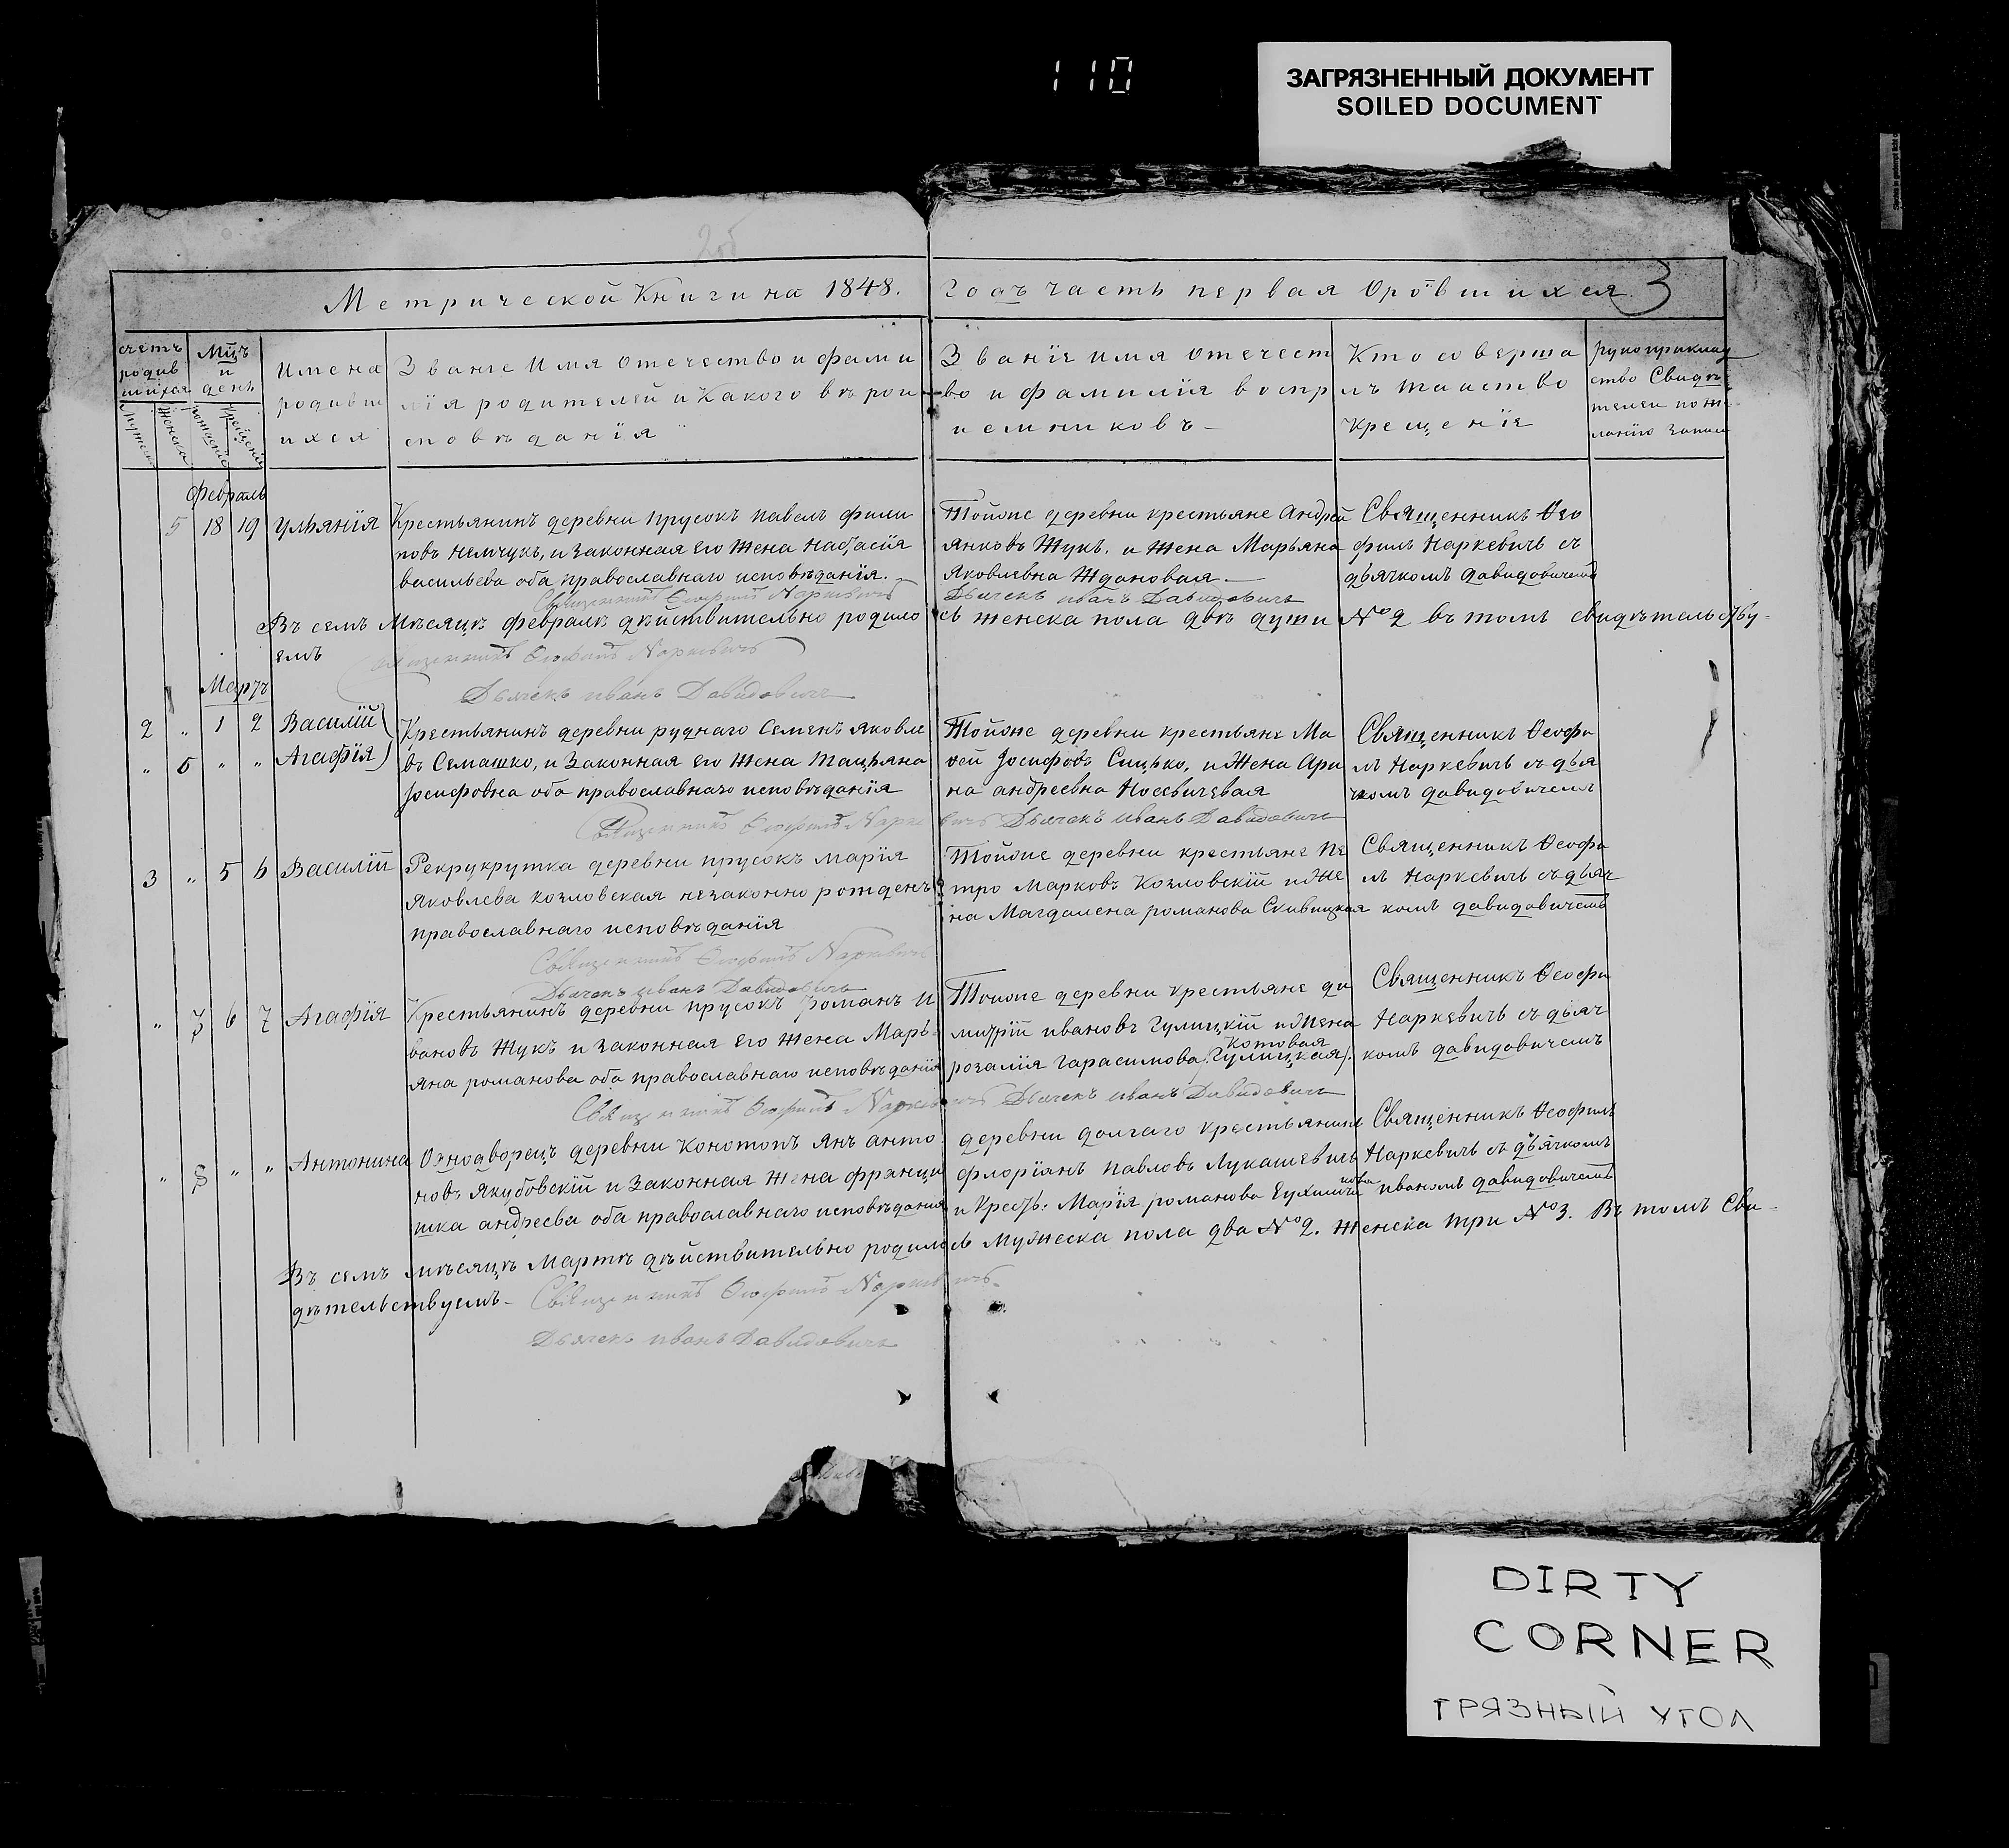 110
ЗАГРЯЗНЕННЫЙ ДОКУМЕНТ
SOILED DOCUMENT
2об
Метрической Книги на 1848. Годъ часть первая Ородившихся. 3
счетъ родив шихся
Мцъ и день
Мужеска
Женска
Рожденіе
Крещеніе
Имена
родивш
ихся
Званіе Имя отечество и фами
лія родителей и Какого въ рои
сповъданія
Званіе имя отечест
во и фамилія воспр
иемниковъ
Кто соверша
лъ таиство
Крещеніе
рукоприклад
ство Свидѣ
телеи по же
ланію записи
Февраль
5 18 19 Ульянія
Крестьянинъ деревни прусокъ павелъ фили
повъ Немчукъ, и Законная Его Жена Настасія
васильева оба православнаго исповѣданія.
Тойже деревни крестьяне Андрей
янковъ Жукъ. и Жена Марьяна
Яковлевна Ждановая
Священникъ Ѳео
филъ Наркевичъ съ
дьячкомъ давидовичемъ
Священникъ Ѳеофилъ Наркевичъ
Дьячекъ иванъ Давидовичъ
Въ семъ Мѣсяцѣ февралѣ дѣйствительно родилось женска пола двѣ души №2 въ томъ свидѣтельству-
емъ
Священникъ Ѳеофилъ Наркевичъ
Дьячекъ иванъ Давидовичъ
Мартъ
2 „ 1 2 Василій
„ 6 „ „ Агафія
Крестьянинъ деревни руднаго Семенъ яковле
въ Семашко, и Законная Его Жена Тацьяна
Іосифовна оба православнаго исповѣданія
Тойже деревни крестьяне Ма
ѳей Іосифовъ Сицько, и Жена Ари
на андреевна Носевичевая
Священникъ Ѳеофи
лъ Наркевичъ съ дья
чкомъ давидовичемъ
Священникъ Ѳеофилъ Наркевичъ Дьячекъ иванъ Давидовичъ
3 „ 5 6 Василій
Рекрукрутка деревни прусокъ марія
Яковлева козловская незаконно рожденъ
православнаго исповѣданія
Тойже деревни крестьяне пе
тро Марковъ Козловскій и Же
на Магдалена романова Скивицкая
Священникъ Ѳеофи
лъ Наркевичъ съ дьяч
комъ давидовичемъ
Священникъ Ѳеофилъ Наркевичъ
Дьячекъ иванъ Давидовичъ
„ 7 6 7 Агафія
Крестьянинъ деревни прусокъ романъ и
вановъ Жукъ и законная Его Жена Марь
яна романова оба православнаго исповѣданія
Тойже деревни крестьяне ди
митрій ивановъ Гулицкій и Жена
Котовая
розалія Гарасимова (Гулицкая).
Священникъ Ѳеофи
Наркевичъ съ дьяч
комъ давидовичемъ
Священникъ Ѳеофилъ Наркевичъ Дьячекъ иванъ Давидовичъ
„ 8 „ „ Антонина
Однодворецъ деревни Конотопъ янъ анто
новъ Якубовскій и Законная Жена франци
шка андреева оба православнаго исповѣданія
деревни долгаго крестьянинъ
флоріанъ павловъ Лукашевичъ
и Крестъ: Марія романова
Священникъ Ѳеофилъ
Наркевичъ съ дьячкомъ
иваномъ давидовичемъ
Въ семъ мѣсяцѣ Мартѣ дѣйствительно родилось Мужеска пола два №2. Женска три №3. Въ томъ Сви-
дѣтельствуемъ-
Священникъ Ѳеофилъ Наркевичъ
Дьячекъ иванъ Давидовичъ
DIRTY
CORNER
ГРЯЗНЫЙ УГОЛ